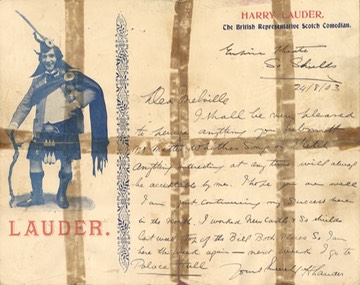 HARRY LAUDER,
The British Representative Scotch Comedian.
Empire Theatre
So Shields
24/8/03
Dear Melville
I shall be very pleased
to receive anything you submit
no matter whether Song or Sketch
anything interesting at any time will always
be acceptable by me. I hope you are well
I am continuing my Success here
in the North. I worked Newcastle & So Shields
last week top of the Bill Both Places So I am
here this week again — next week I go to
Palace Hull
Yours Sincerely H Lauder
LAUDER.